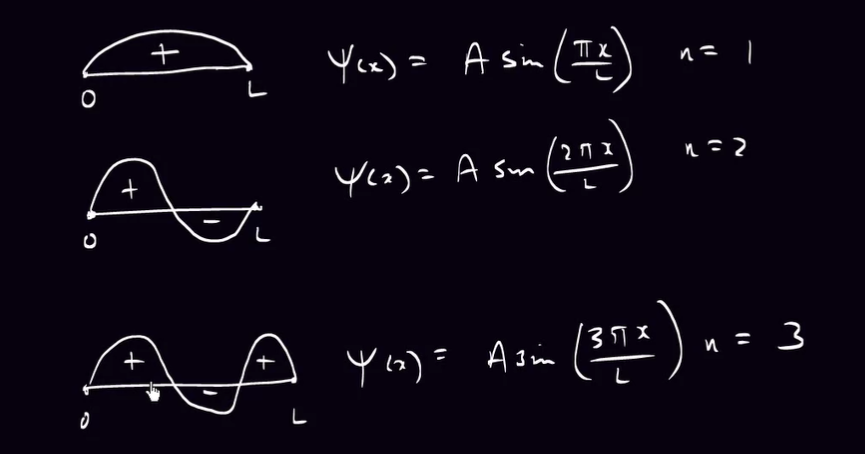 + ψ(x) = A sin(πx/L) n = 1
0 L
+ - ψ(x) = A sin(2πx/L) n = 2
0 L
+ - + ψ(x) = A sin(3πx/L) n = 3
0 L